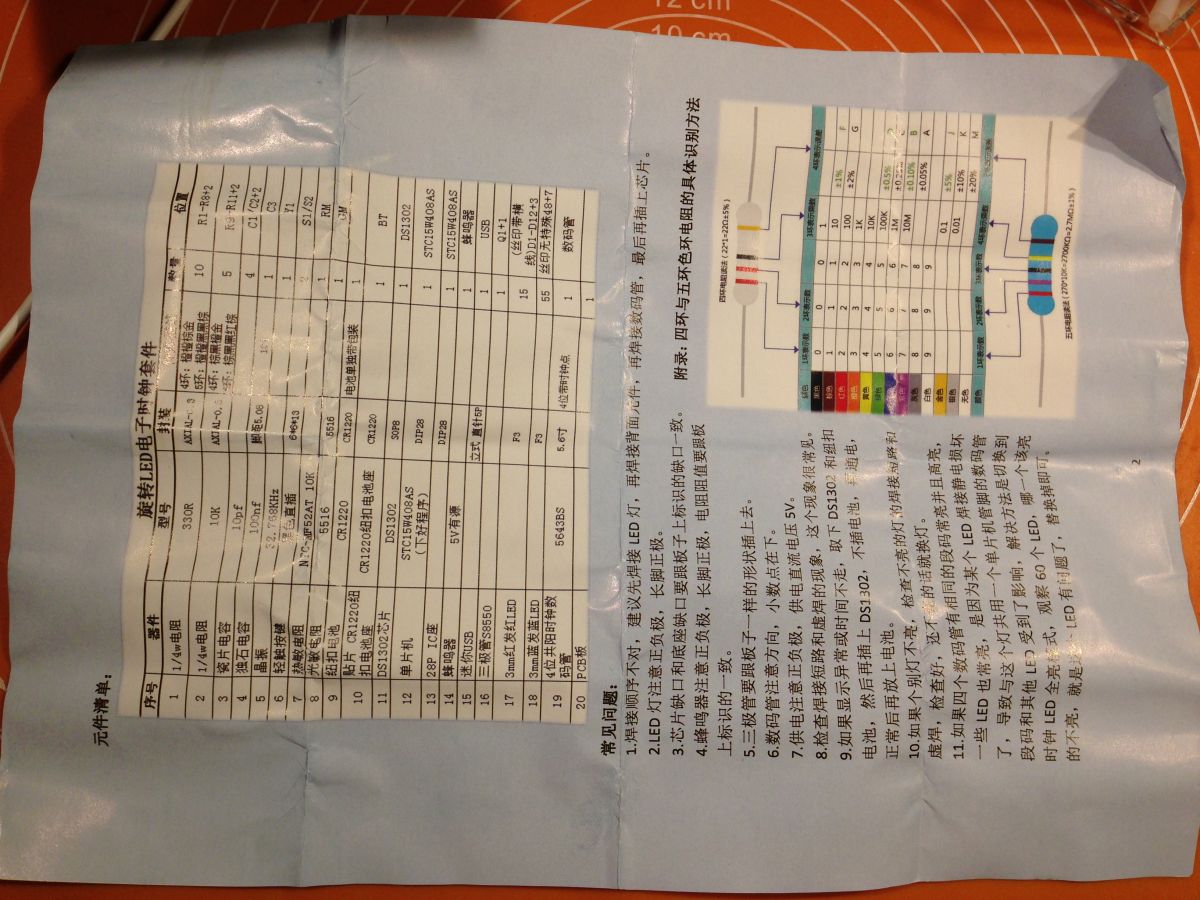 12 cm
10 cm
元件清单：
旋转LED电子时钟套件
序号 器件 型号 封装 数量 位置
1 1/4w电阻 330R AXIAL-0.3 4环：橙橙棕金 5环：橙橙黑黑棕 10 R1-R8+2
2 1/4w电阻 10K AXIAL-0.3 4环：棕黑橙金 5环：棕黑黑红棕 5 R9-R11+2
3 瓷片电容 10pf 4 C1 C2+2
4 独石电容 100nf 脚距5.08 1 C3
5 晶振 32.768KHz 1 Y1
6 轻触按键 直插 6*6*13 2 S1/S2
7 热敏电阻 MF52AT 10K 1 RM
8 光敏电阻 5516 5516 1 GM
9 纽扣电池 CR1220 CR1220 电池单独带包装 1
10 贴片 CR1220纽扣电池座 CR1220纽扣电池座 CR1220 1 BT
11 DS1302芯片 DS1302 SOP8 1 DS1302
12 单片机 STC15W408AS（下好程序） DIP28 1 STC15W408AS
13 28P IC座 DIP28 1 STC15W408AS
14 蜂鸣器 5V有源 1 蜂鸣器
15 迷你USB 立式 直针5P 1 USB
16 三极管S8550 1 Q1+1
17 3mm红发红LED F3 15 （丝印带横线）D1-D12+3
18 3mm蓝发蓝LED F3 55 丝印无特殊48+7
19 4位共阳时钟数码管 5643BS 5.6寸 4位带时钟点 1 数码管
20 PCB板 1
常见问题：
1.焊接顺序不对，建议先焊接 LED 灯，再焊接背面元件，再焊接数码管，最后再插上芯片。
2.LED 灯注意正负极，长脚正极。
3.芯片缺口和底座缺口要跟板子上标识的缺口一致。
4.蜂鸣器注意正负极，长脚正极，电阻阻值要跟板
上标识的一致。
5.三极管要跟板子一样的形状插上去。
6.数码管注意方向，小数点在下。
7.供电注意正负极，供电直流电压 5V。
8.检查焊接短路和虚焊的现象，这个现象很常见。
9.如果显示异常或时间不走，取下 DS1302 和纽扣
电池，然后再插上 DS1302，不插电池，通电，
正常后再放上电池。
10.如果个别灯不亮，检查不亮的灯的焊接短路和
虚焊，检查好，还不的话就换灯。
11.如果四个数码管有相同的段码常亮并且高亮，
一些 LED 也常亮，是因为某个 LED 焊接静电损坏
了，导致与这个灯共用一个单片机管脚的数码管
段码和其他 LED 受到了影响，解决方法是切换到
时钟 LED 全亮模式，观察 60 个 LED，哪一个该亮
的不亮，就是这个 LED 有问题了，替换掉即可。
附录：四环与五环色环电阻的具体识别方法
四环电阻读法（22*1=22Ω±5%）
颜色 1环表示数 2环表示数 3环表示乘数 4环表示误差
黑色 0 0 0 1
棕色 1 1 1 10 ±1% F
红色 2 2 2 100 ±2% G
橙色 3 3 3 1K
黄色 4 4 4 10K
绿色 5 5 5 100K ±0.5%
6 6 6 1M
7 7 7 10M ±0.10% B
灰色 8 8 8 ±0.05% A
白色 9 9 9
金色 0.1 ±5% J
银色 0.01 ±10% K
无色 ±20% M
颜色 1环表示数 2环表示数 3环表示数 4环表示乘数
五环电阻读法（270*10K=2700KΩ=2.7MΩ±1%）
2